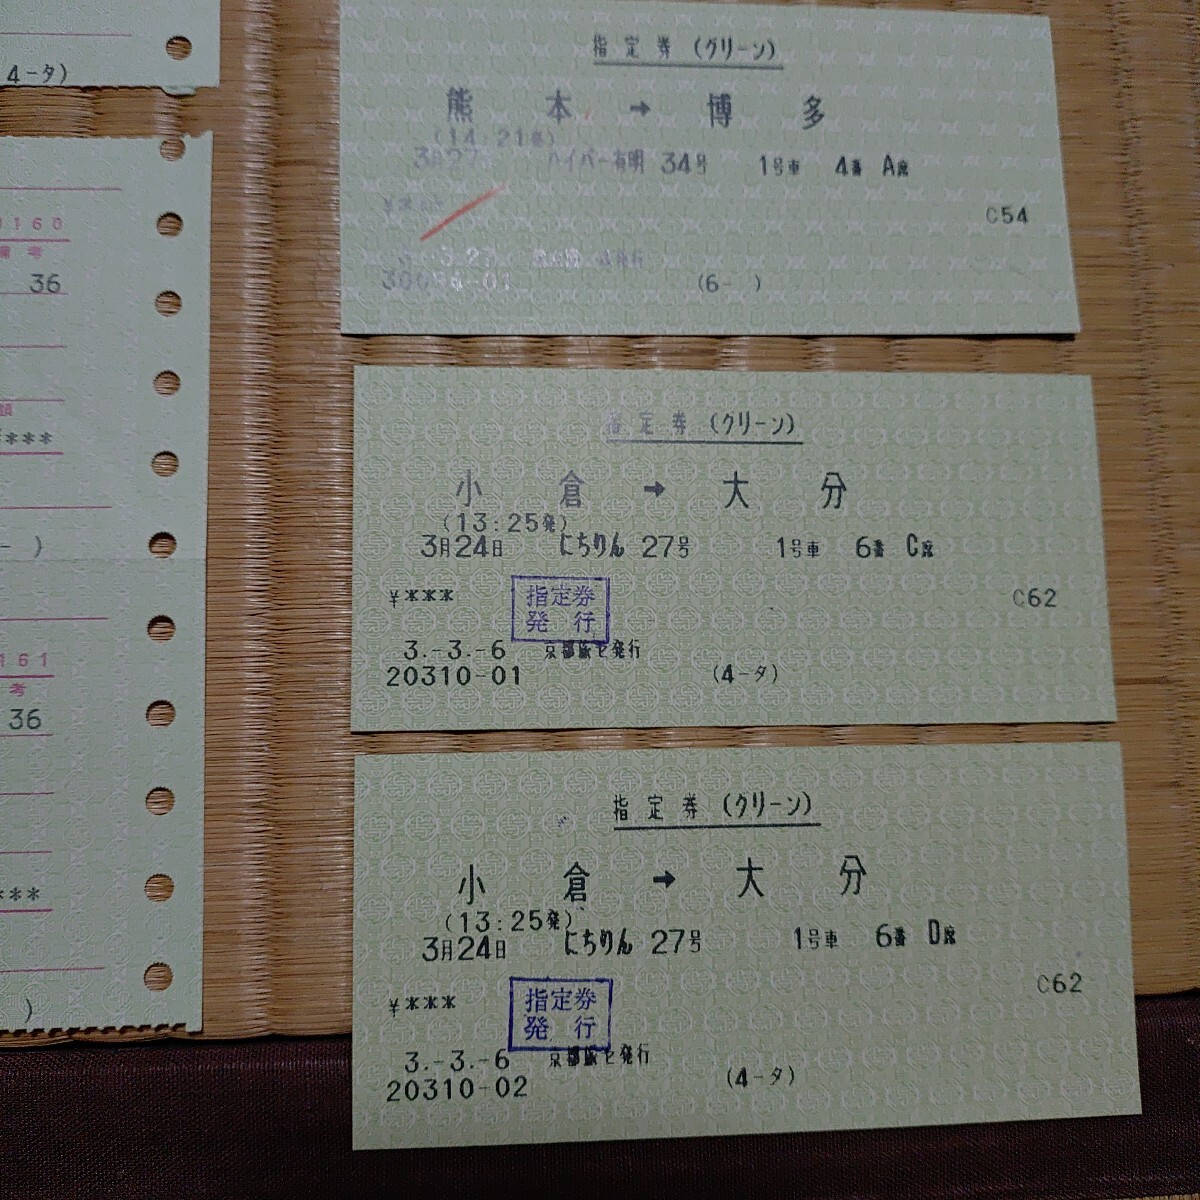 4-タ)
1160
備考
36
***
- )
161
考
36
***
)
指定券(グリーン)
熊本→博多
(14:21発)
3月27 ハイパー有明 34号 1号車 4番 A席
C54
(6- )
指定券(グリーン)
小倉→大分
(13:25発)
3月24日 にちりん 27号 1号車 6番 C席
¥***
C62
指定券
発行
3.-3.-6 京都旅セ発行
20310-01 (4-タ)
指定券(グリーン)
小倉→大分
(13:25発)
3月24日 にちりん 27号 1号車 6番 D席
¥***
C62
指定券
発行
3.-3.-6 京都旅セ発行
20310-02 (4-タ)